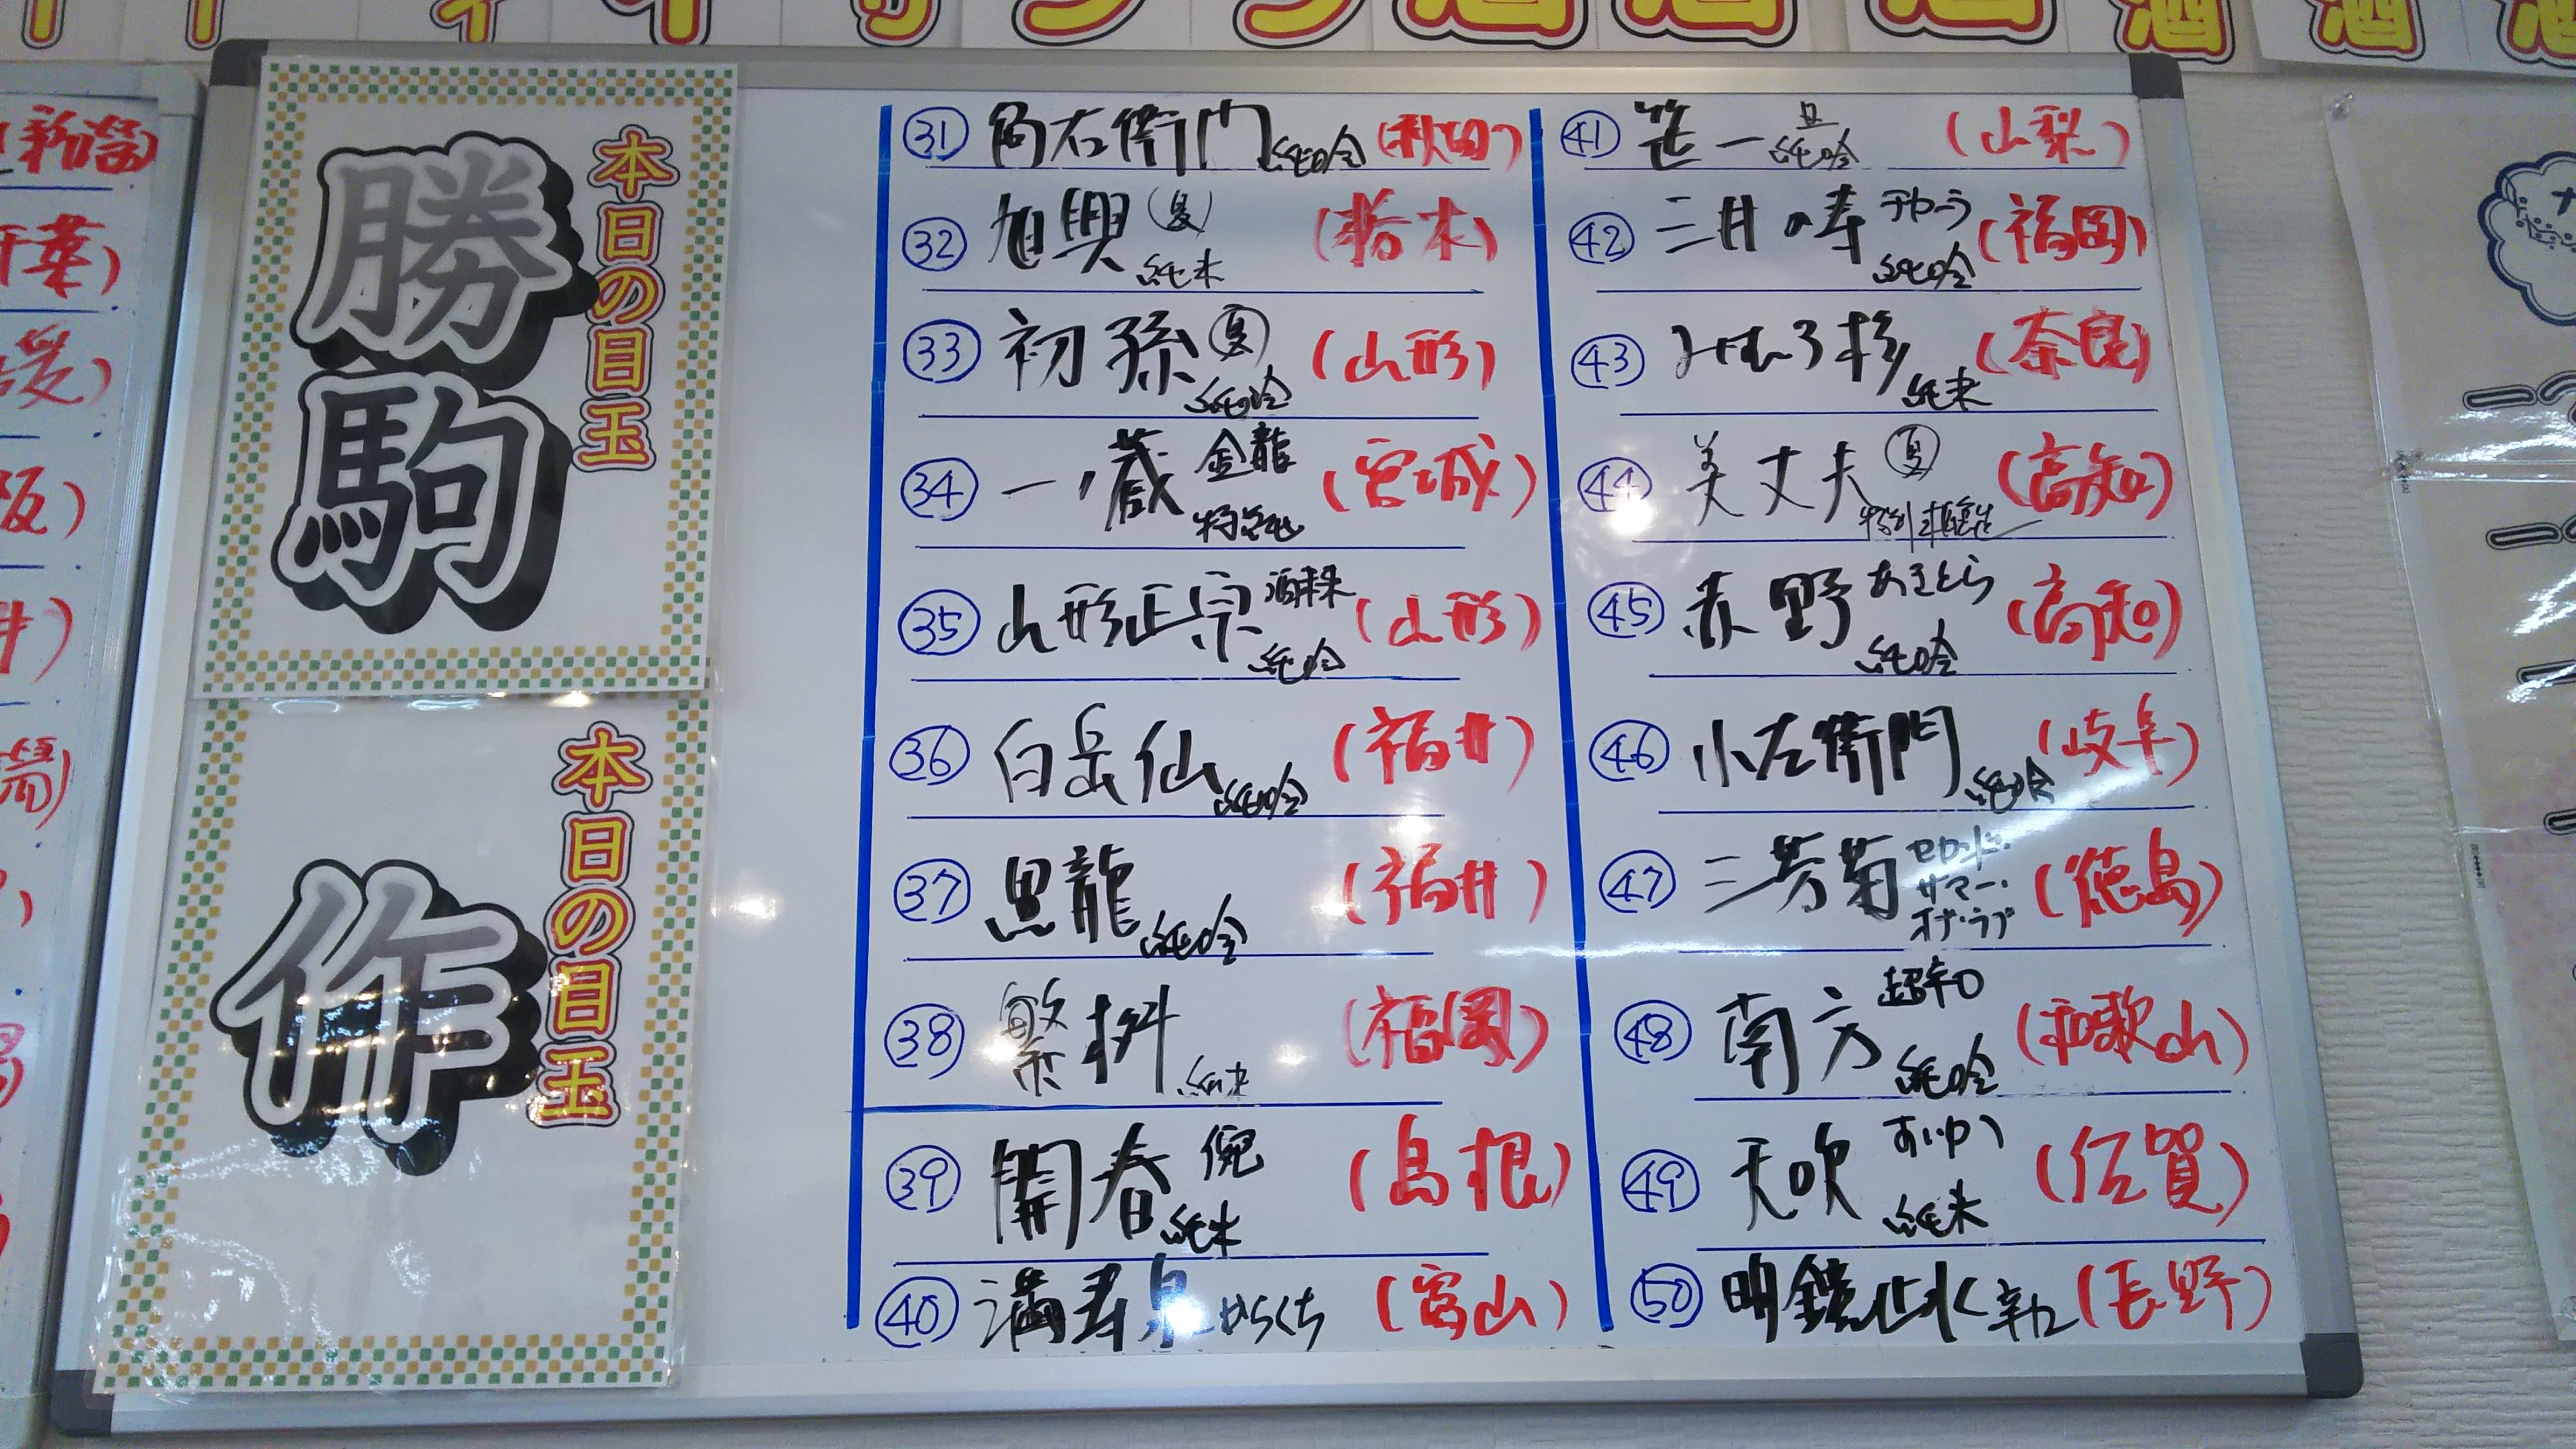 本日の目玉
勝駒
本日の目玉
作
㉛ 角右衛門 純吟 (秋田)
㉜ 旭興 (夏) 純米 (栃木)
㉝ 初孫 夏 純吟 (山形)
㉞ 一ノ蔵 金龍 特純 (宮城)
㉟ 山形正宗 酒未来 純吟 (山形)
㊱ 白岳仙 純吟 (福井)
㊲ 黒龍 純吟 (福井)
㊳ 繁桝 純米 (福岡)
㊴ 開春 俔 純米 (島根)
㊵ 満寿泉 からくち (富山)
㊶ 笹一 旦 純吟 (山梨)
㊷ 三井の寿 チカーラ 純吟 (福岡)
㊸ みむろ杉 純米 (奈良)
㊹ 美丈夫 夏 (高知)
㊺ 赤野 あきとら 純吟 (高知)
㊻ 小左衛門 純吟 (岐阜)
㊼ 三芳菊 セカンド・サマー・オブ・ラブ (徳島)
㊽ 南方 超辛口 純吟 (和歌山)
㊾ 天吹 純米 (佐賀)
㊿ 明鏡止水 辛口 (長野)